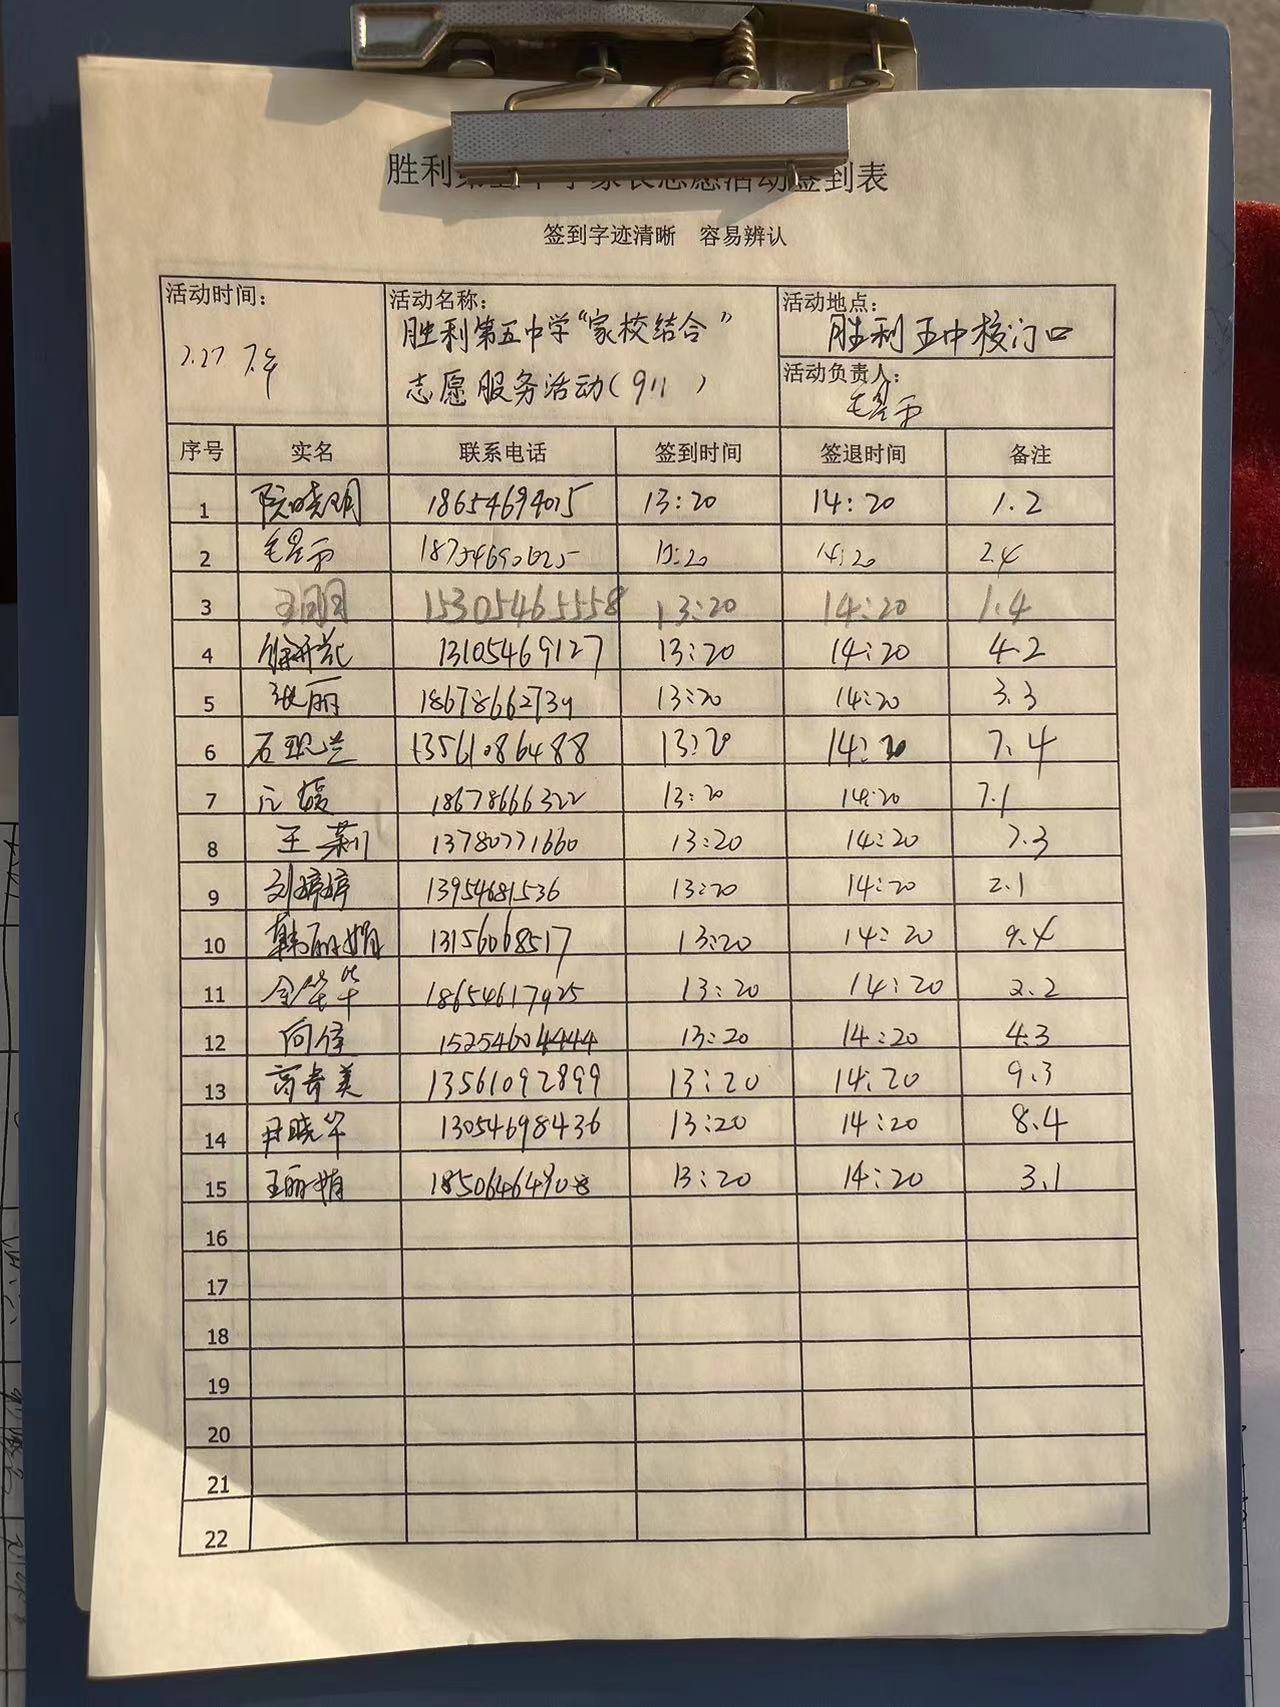 胜利第五中学家长志愿活动签到表
签到字迹清晰 容易辨认
活动时间： 活动名称： 活动地点：
2.27 下午 胜利第五中学“家校结合” 胜利五中校门口
志愿服务活动（911 ） 活动负责人：
序号 实名 联系电话 签到时间 签退时间 备注
1 阮晓明 18654694015 13:20 14:20 1.2
2 13:20 14:20 2.4
3 15305465558 13:20 14:20 1.4
4 13105469127 13:20 14:20 4.2
5 张丽 18678662739 13:20 14:20 3.3
6 石现兰 13561086488 13:20 14:20 7.4
7 18678666322 13:20 14:20 7.1
8 王莉 13780771660 13:20 14:20 7.3
9 刘婷婷 13954681536 13:20 14:20 2.1
10 韩丽娟 13156068517 13:20 14:20 9.4
11 18654617925 13:20 14:20 2.2
12 15254604444 13:20 14:20 4.3
13 高青美 13561092899 13:20 14:20 9.3
14 尹晓华 13054698436 13:20 14:20 8.4
15 王丽娟 18506464908 13:20 14:20 3.1
16
17
18
19
20
21
22